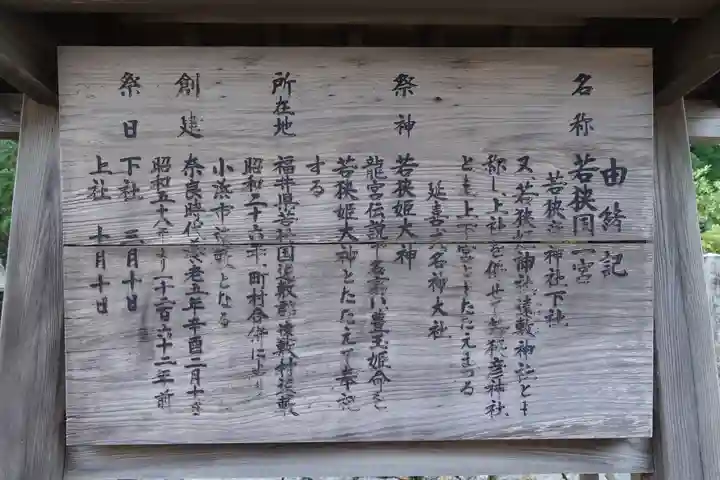 由緒記
名称 若狭国一宮
若狭彦神社下社
又、若狭姫神社遠敷神社とも
称し上社を併せて若狭彦神社
とも上下宮ともたたえまつる
延喜式名神大社
祭神 若狭姫大神
龍宮伝説で名高い豊玉姫命を
若狭姫大神とたたえて奉祀
する
所在地 福井県若狭国遠敷郡遠敷村遠敷
昭和二十六年町村合併により
小浜市遠敷となる
創建 奈良時代養老五年辛酉二月十日
昭和五十八年より一千二百六十二年前
祭日 下社 三月十日
上社 十月十日